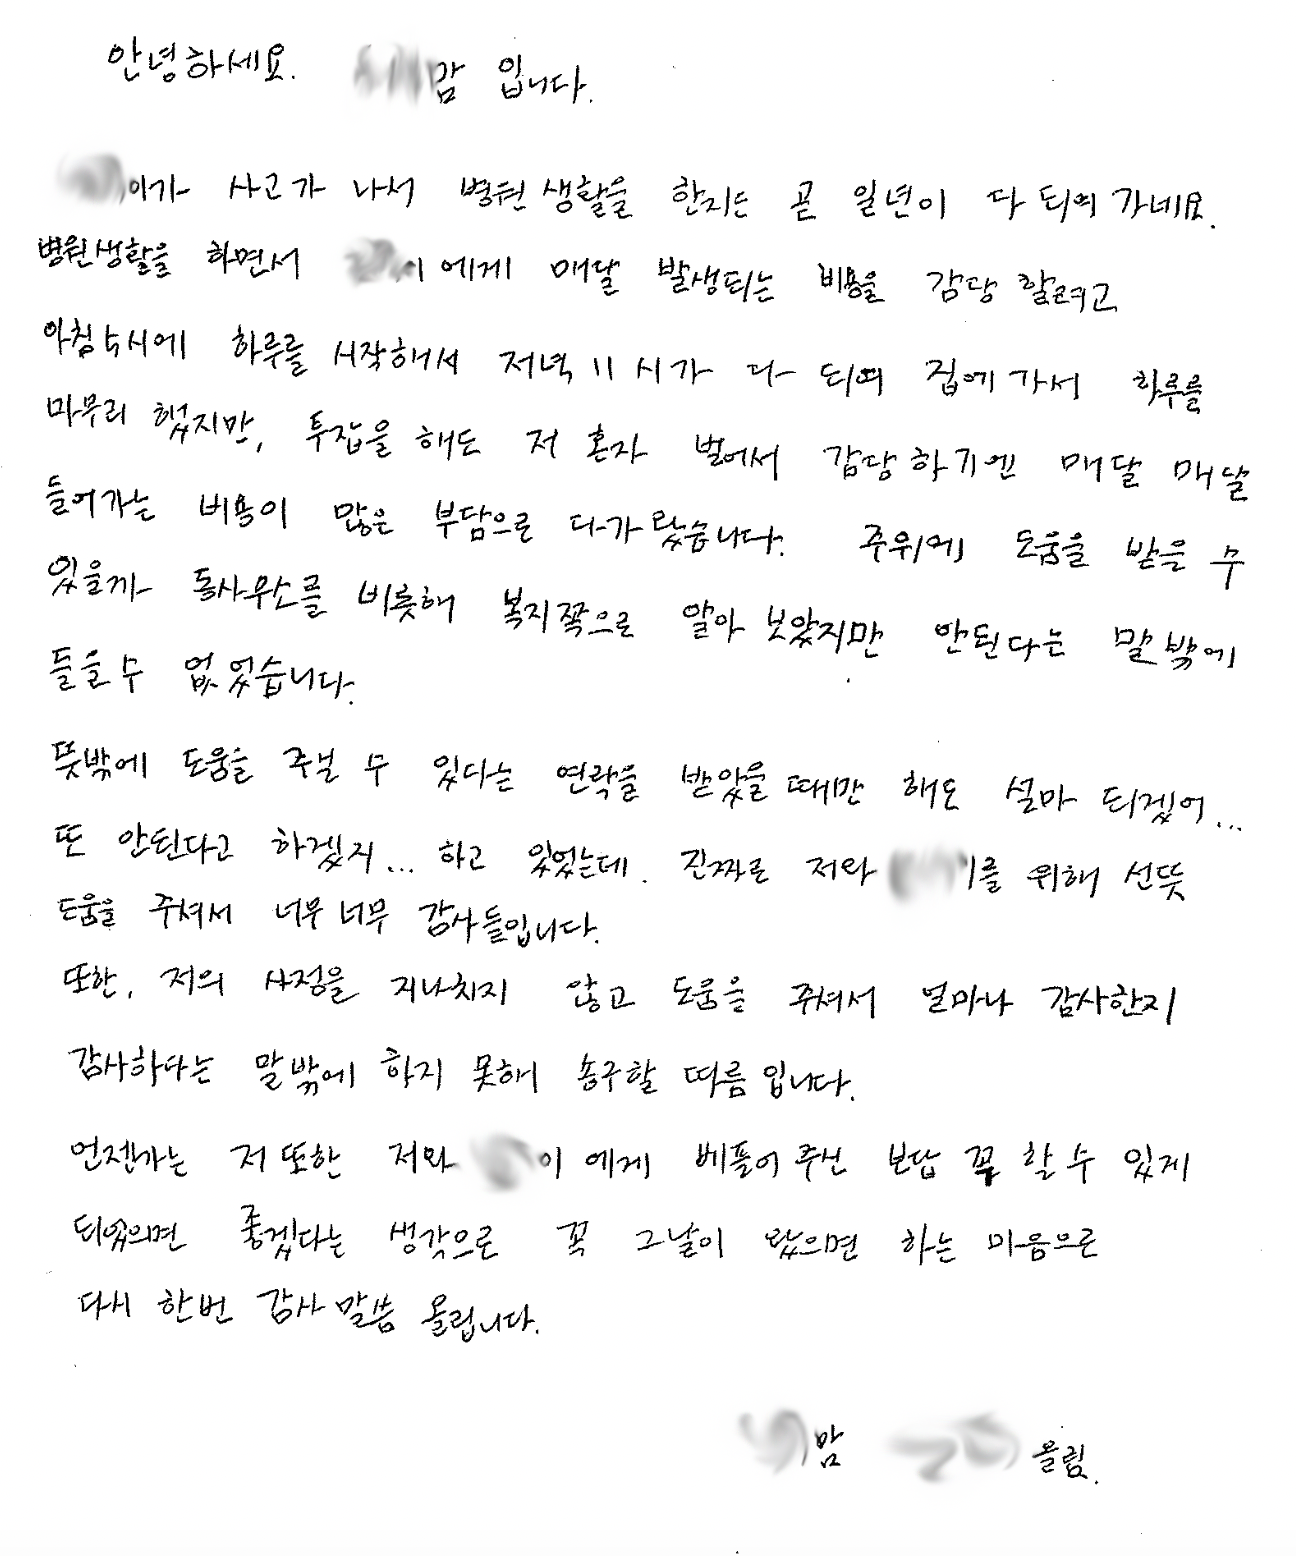 안녕하세요. 맘 입니다.
이가 사고가 나서 병원생활을 한지는 곧 일년이 다 되어 가네요.
병원생활을 하면서 이에게 매달 발생되는 비용을 감당 할려고
아침 5시에 하루를 시작해서 저녁 11시가 다 되여 집에 가서 하루를
마무리 했지만, 투잡을 해도 저 혼자 벌어서 감당하기엔 매달 매달
들어가는 비용이 많은 부담으로 다가 왔습니다. 주위에 도움을 받을 수
있을까 동사무소를 비롯해 복지쪽으로 알아 보았지만 안된다는 말밖에
들을수 없었습니다.
뜻밖에 도움을 주실 수 있다는 연락을 받았을 때만 해도 설마 되겠어...
또 안된다고 하겠지... 하고 있었는데. 진짜로 저와 를 위해 선뜻
도움을 주셔서 너무너무 감사들입니다.
또한, 저의 사정을 지나치지 않고 도움을 주셔서 얼마나 감사한지
감사하다는 말밖에 하지 못해 송구할 따름입니다.
언젠가는 저 또한 저와 이에게 베플어주신 보답 꼭 할수 있게
되었으면 좋겠다는 생각으로 꼭 그날이 왔으면 하는 마음으로
다시 한번 감사 말씀 올립니다.
맘 올림.